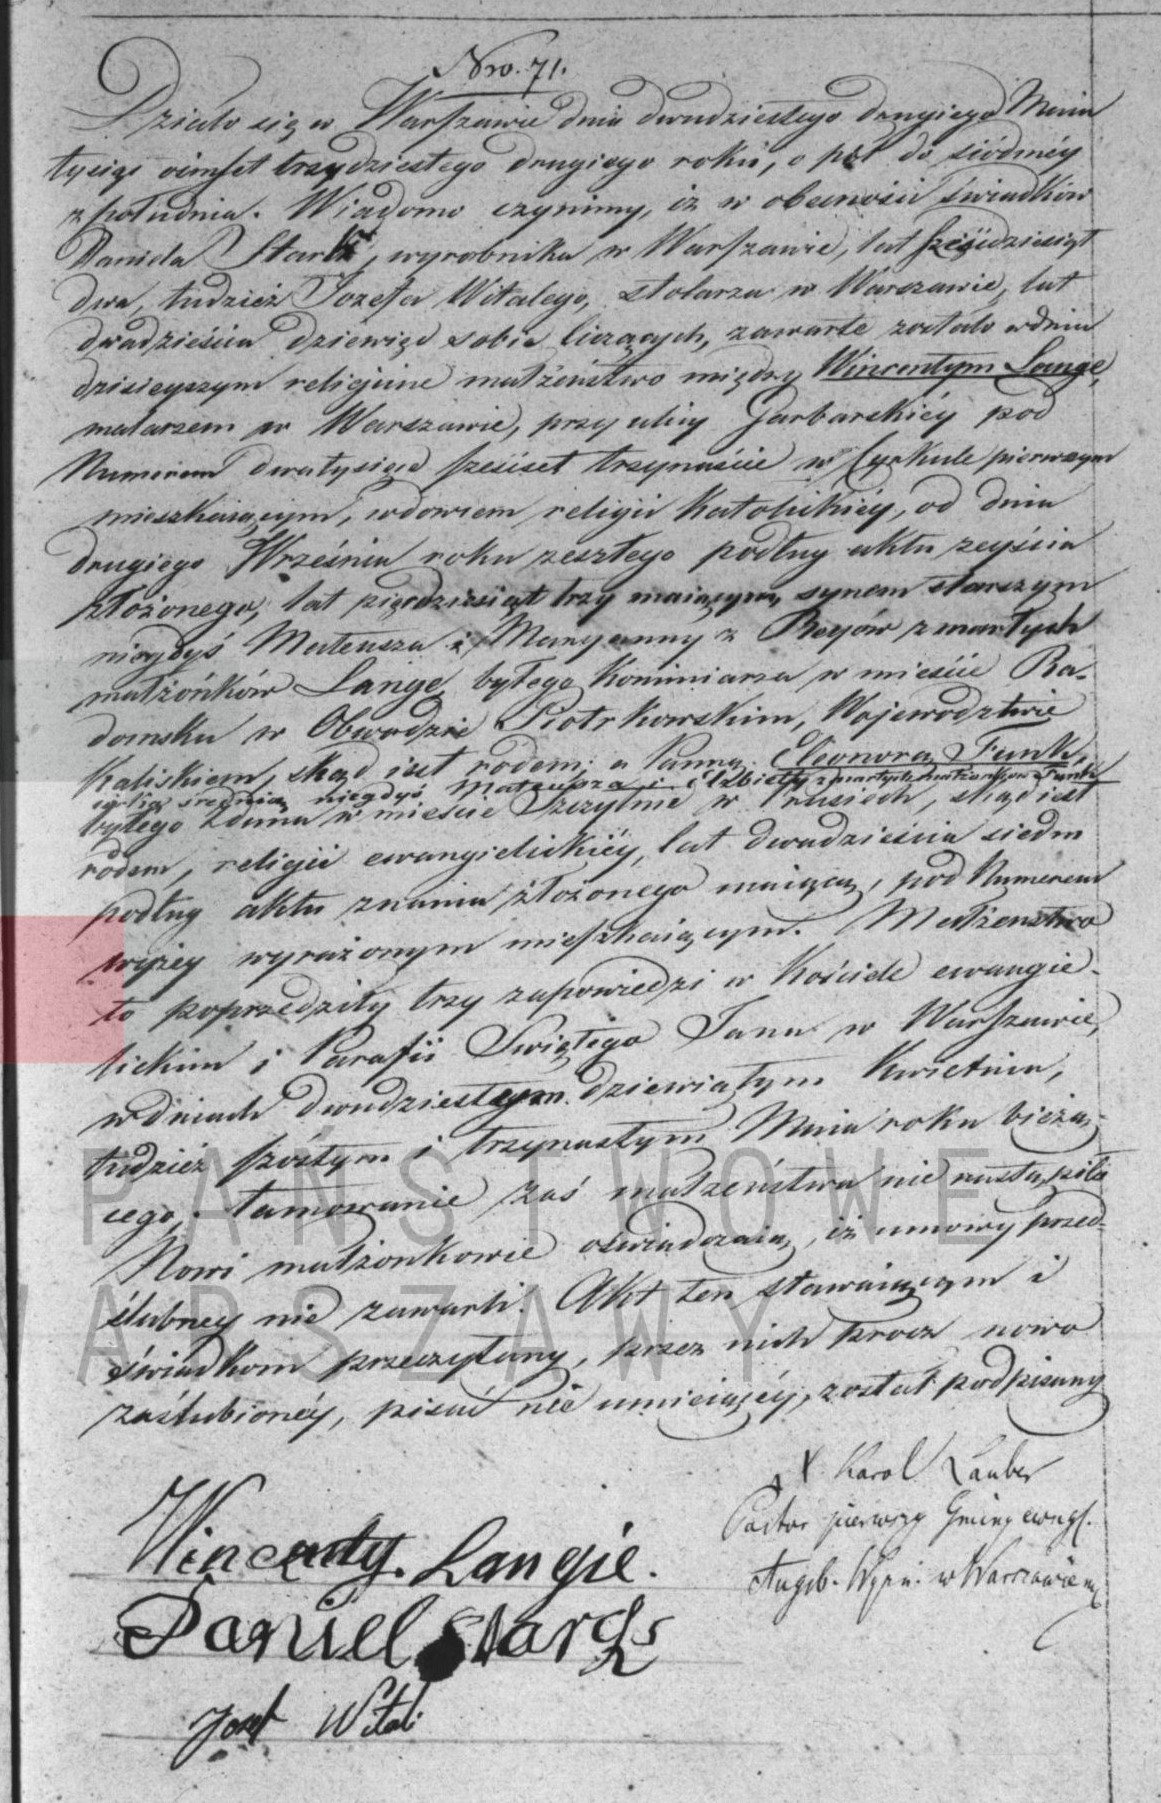 Nro. 71.
Działo się w Warszawie dnia dwudziestego drugiego Maia
tysiąc ośmset trzydziestego drugiego roku, o pół do siódméy
z południa. Wiadomo czynimy, iż w obecności świadków
Daniela Stark, wyrobnika w Warszawie, lat sześćdziesiąt
dwa, tudzież Jozefa Witalego, stolarza w Warszawie, lat
dwadzieścia dziewięć sobie liczących, zawarte zostało w dniu
dzisieyszym religijne małżeństwo między Wincentym Lange,
malarzem w Warszawie, przy ulicy Garbarskiéy pod
Numerem dwatysiące sześćset trzynaście w Cyrkule pierwszym
mieszkaiącym, wdowcem religii Katolickiéy, od dnia
drugiego Września roku zeszłego podług aktu zeyścia
złożonego, lat pięćdziesiąt trzy maiącym, synem starszym
niegdyś Mateusza i Maryanny z Regów zmarłych
małżonków Lange, byłego Kominiarza w mieście Ra-
domsku w Obwodzie Piotrkowskim, Wojewodztwie
Kaliskiem, skąd iest rodem; a Panną Eleonorą Funk,
córką średnią niegdyś Mateusza i Elżbiety zmarłych małżonków Funk
byłego Zduna w mieście Szczytnie w Prusiech, skąd iest
rodem, religii ewangielickiéy, lat dwadzieścia siedm
podług aktu znania złożonego maiącą, pod Numerem
wyżey wyrażonym mieszkaiącym. Małżeństwo
to poprzedziły trzy zapowiedzi w Kościele ewangie-
lickim i Parafii Swiętego Jana w Warszawie,
w dniach dwudziestym dziewiątym Kwietnia,
tudzież szóstym i trzynastym Maia roku bieżą-
cego, tamowanie zaś małżeństwa nie nastąpiło
Nowi małżonkowie oświadczaią, iż umowy przed-
ślubney nie zawarli. Akt ten stawaiącym i
świadkom przeczytany, przez nich prócz nowo
zaślubionéy, pisać nie umieiącéy, został podpisany
X Karol Lauber
Pastor pierwszy Gminy ewagl.
Augsb. Wyzn. w Warszawie
Wincenty Langie.
Daniel Starck
Jozef Witali
PAŃSTWOWE
WARSZAWY